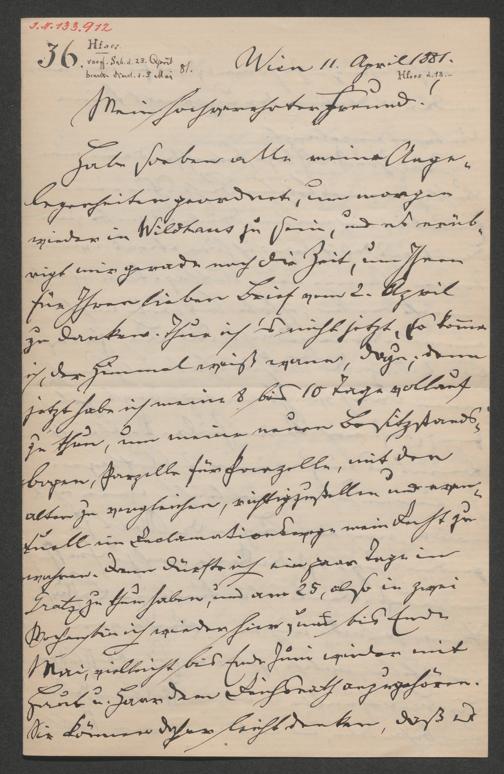 J.N. 133.912
36.
Wien 11. April 1881.
Mein hochverehrter Freund!
Habe soeben alle meine Ange-
legenheiten geordnet, um morgen
wieder in Wildhaus zu sein, und es erüb-
rigt mir gerade noch die Zeit, um Ihnen
für Ihren lieben Brief vom 2. April
zu danken. Thue ich's nicht jetzt, so komme
ich, der Himmel weiß wann, dazu; denn
jetzt habe ich meine 8 bis 10 Tage vollauf
zu thun, um meine neuen Besitzstands-
bogen, Parzelle für Parzelle, mit den
alten zu vergleichen, richtigzustellen und even-
tuell im Reclamationswege mein Recht zu
wahren. Dann dürfte ich ein paar Tage in
Gratz zu thun haben, und am 25, also in zwei
Wochen bin ich wieder hier, um bis Ende
Mai, vielleicht bis Ende Juni wieder mit
Haut u. Haar dem Reichsrath anzugehören.
Sie können daher leicht denken, daß es